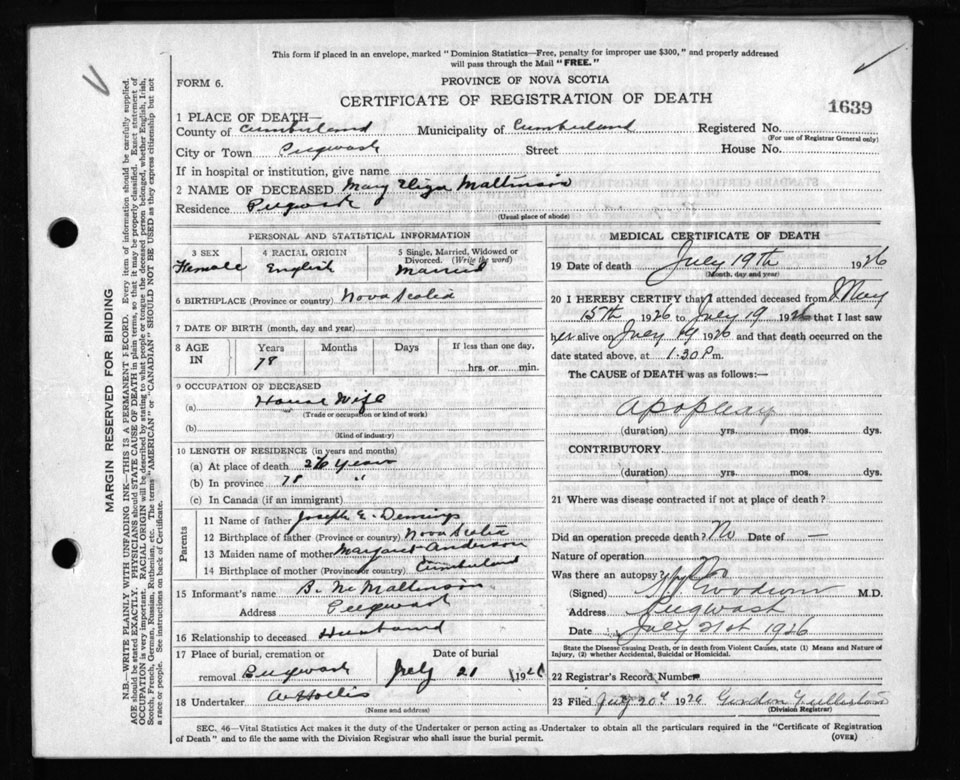 This form if placed in an envelope, marked "Dominion Statistics—Free, penalty for improper use $300," and properly addressed
will pass through the Mail "FREE."
FORM 6.
PROVINCE OF NOVA SCOTIA
CERTIFICATE OF REGISTRATION OF DEATH
1639
1 PLACE OF DEATH—
County of Cumberland Municipality of Cumberland Registered No.
(For use of Registrar General only)
City or Town Pugwash Street House No.
If in hospital or institution, give name
2 NAME OF DECEASED Mary Eliza Mattinson
Residence Pugwash
(Usual place of abode)
PERSONAL AND STATISTICAL INFORMATION
3 SEX 4 RACIAL ORIGIN 5 Single, Married, Widowed or
Divorced. (Write the word)
Female English Married
6 BIRTHPLACE (Province or country) Nova Scotia
7 DATE OF BIRTH (month, day and year)
8 AGE IN Years Months Days If less than one day,
78 hrs. or min.
9 OCCUPATION OF DECEASED
(a) House Wife
(Trade or occupation or kind of work)
(b)
(Kind of industry)
10 LENGTH OF RESIDENCE (in years and months)
(a) At place of death 26 years
(b) In province 78 "
(c) In Canada (if an immigrant)
Parents
11 Name of father Joseph E. Demings
12 Birthplace of father (Province or country) Nova Scotia
13 Maiden name of mother Margaret Anderson
14 Birthplace of mother (Province or country) Cumberland
15 Informant's name B. N. Mattinson
Address Pugwash
16 Relationship to deceased Husband
17 Place of burial, cremation or Date of burial
removal Pugwash July 21 1926
18 Undertaker A Hollis
(Name and address)
MEDICAL CERTIFICATE OF DEATH
19 Date of death July 19th 1926
(Month, day and year)
20 I HEREBY CERTIFY that I attended deceased from May
15th 1926 to July 19 1926 that I last saw
her alive on July 19 1926 and that death occurred on the
date stated above, at 1.30 P m.
The CAUSE of DEATH was as follows:—
Apoplexy
(duration) yrs. mos. dys.
CONTRIBUTORY
(duration) yrs. mos. dys.
21 Where was disease contracted if not at place of death?
Did an operation precede death? No Date of —
Nature of operation
Was there an autopsy? No
(Signed) Goodwin M.D.
Address Pugwash
Date July 21st 1926
State the Disease causing Death, or in Death from Violent Causes, state (1) Means and Nature of
Injury, (2) whether Accidental, Suicidal or Homicidal.
22 Registrar's Record Number
23 Filed July 20th 1926 Gordon
(Division Registrar)
SEC. 46—Vital Statistics Act makes it the duty of the Undertaker or person acting as Undertaker to obtain all the particulars required in the "Certificate of Registration
of Death" and to file the same with the Division Registrar who shall issue the burial permit. (OVER)
MARGIN RESERVED FOR BINDING
N.B.—WRITE PLAINLY WITH UNFADING INK—THIS IS A PERMANENT RECORD. Every item of information should be carefully supplied.
AGE should be stated EXACTLY. PHYSICIANS should STATE CAUSE OF DEATH in plain terms, so that it may be properly classified. Exact statement of
OCCUPATION is very important. RACIAL ORIGIN will be described by stating to what people or tongue the deceased person belonged, whether English, Irish,
Scotch, French, German, Russian, Ruthenian, etc. The terms "AMERICAN" or "CANADIAN" SHOULD NOT BE USED as they express citizenship but not
a race or people. See instructions on back of Certificate.